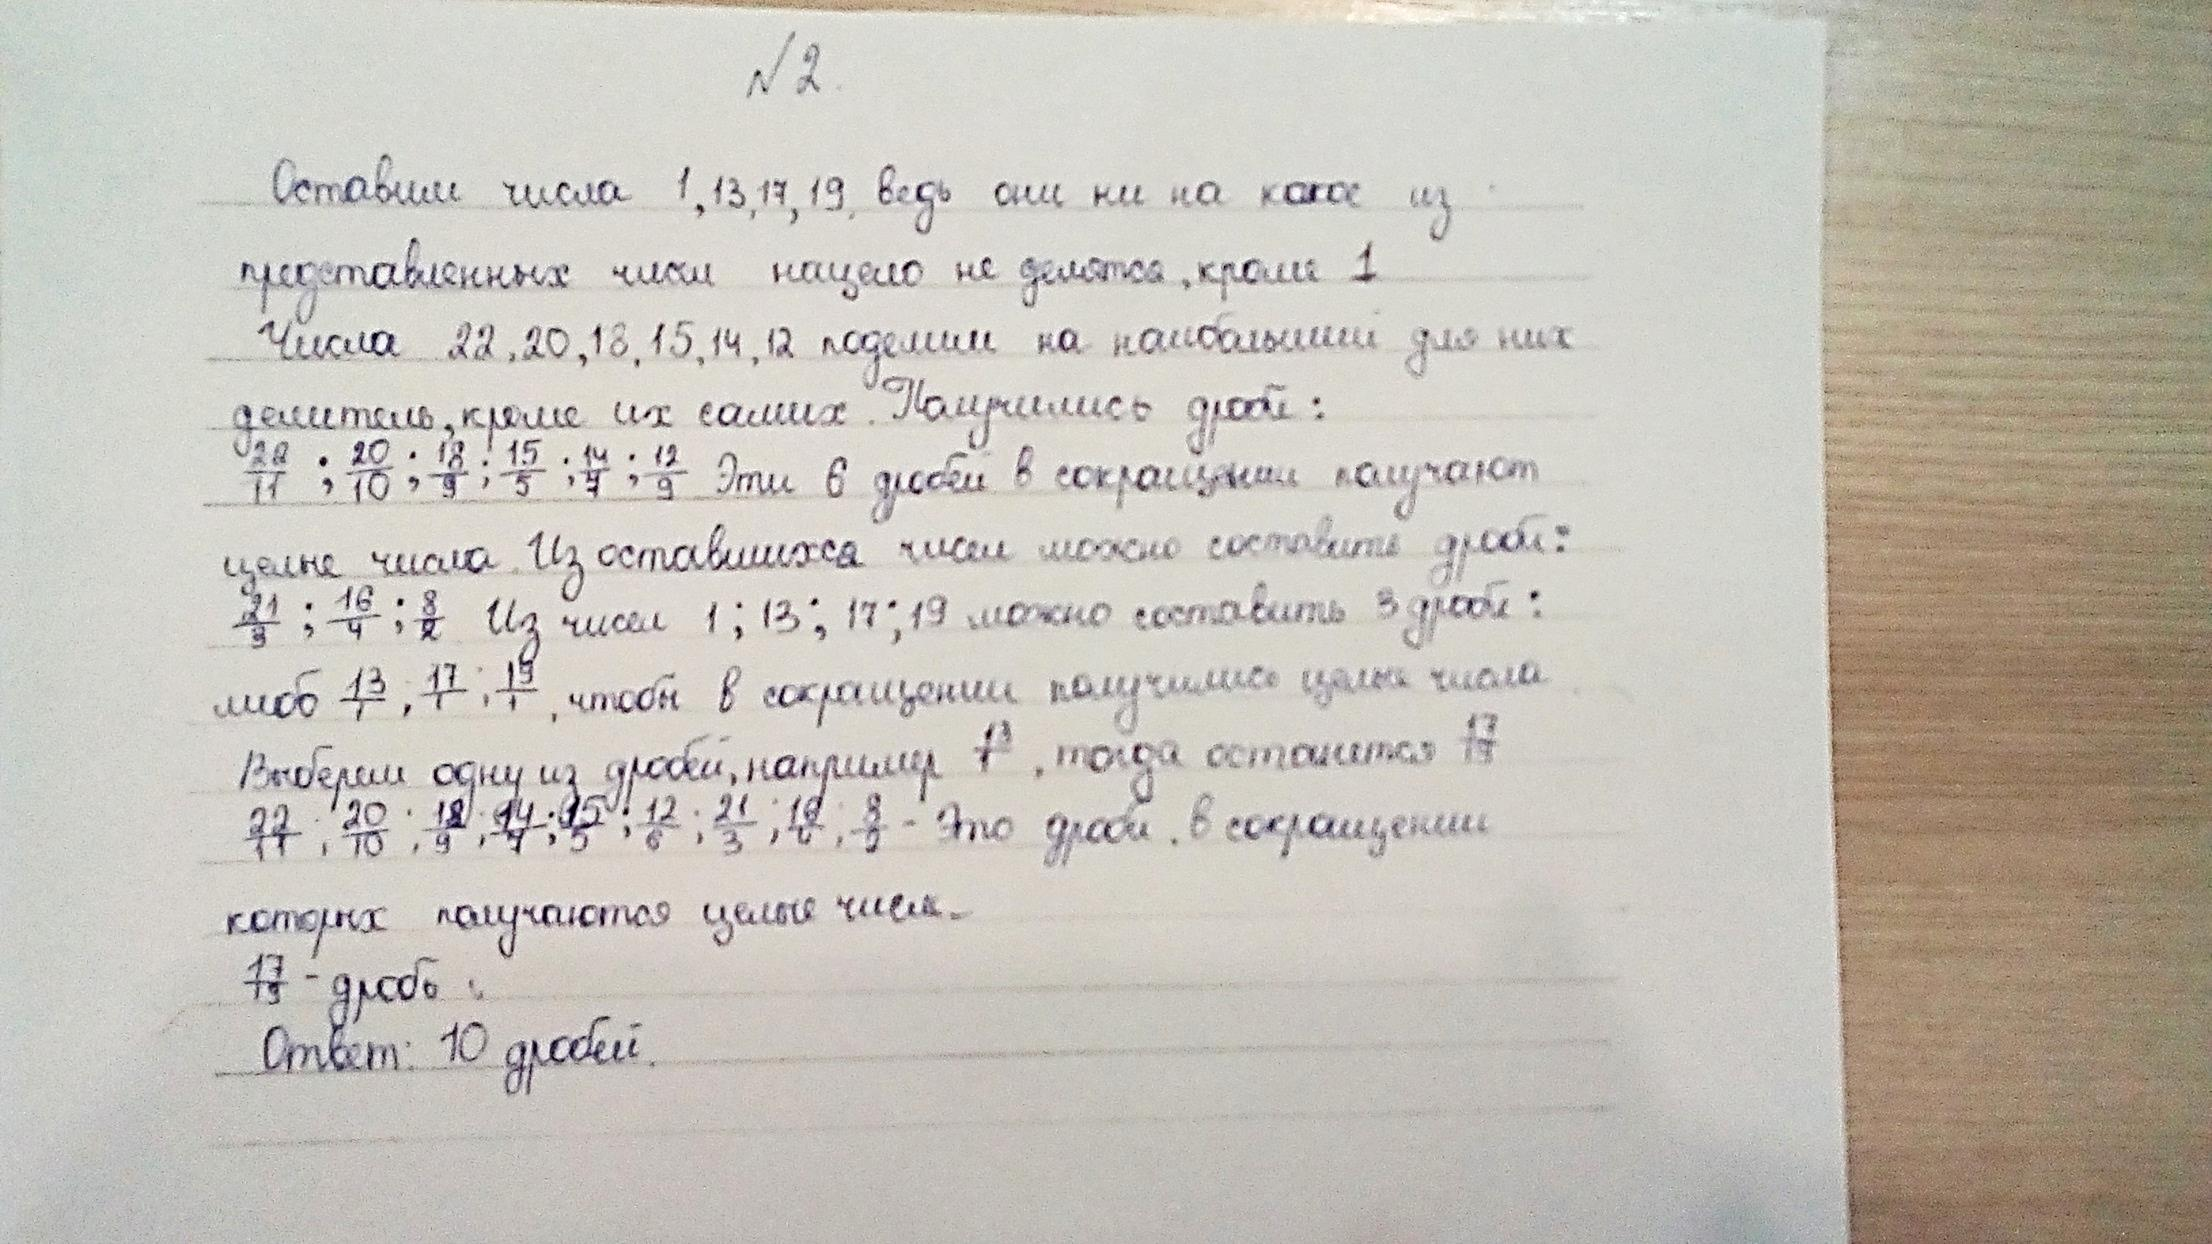 №2.
Оставим числа 1, 13, 17, 19, ведь они ни на какое из
представленных чисел нацело не делятся, кроме 1
Числа 22, 20, 18, 15, 14, 12 поделим на наибольший для них
делитель, кроме их самих. Получились дроби:
22/11 ; 20/10 ; 18/9 ; 15/5 ; 14/7 ; 12/9 Эти 6 дробей в сокращении получают
целые числа. Из оставшихся чисел можно составить дроби:
21/3 ; 16/4 ; 8/2 Из чисел 1; 13; 17; 19 можно составить 3 дроби:
либо 13/1, 17/1, 19/1, чтобы в сокращении получились целые числа
Выберем одну из дробей, например 13/1, тогда останется
22/11, 20/10, 18/9, 14/7; 15/5; 12/6; 21/3, 16/4, - Это дроби, в сокращении
которых получаются целые числа
17/19 - дробь
Ответ: 10 дробей.